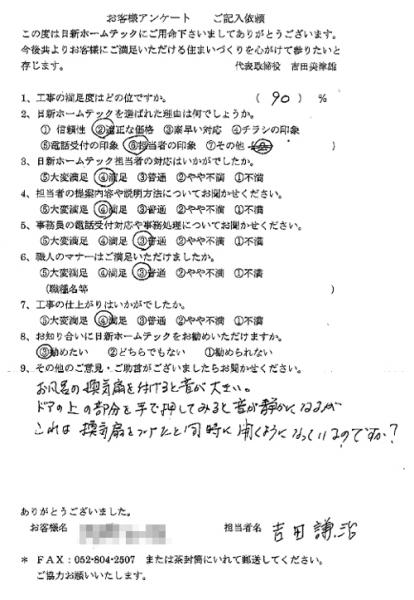 お客様アンケート　ご記入依頼
この度は日新ホームテックにご用命下さいましてありがとうございます。
今後共よりお客様にご満足いただける住まいづくりを心がけて参りたいと
存じます。　代表取締役　吉田美津雄
1、工事の満足度はどの位ですか。　（ 90 ）％
2、日新ホームテックを選ばれた理由は何でしょうか。
①信頼性　②適正な価格　③素早い対応　④チラシの印象
⑤電話受付の印象　⑥担当者の印象　⑦その他（　）
3、日新ホームテック担当者の対応はいかがでしたか。
⑤大変満足　④満足　③普通　②やや不満　①不満
4、担当者の提案内容や説明方法についてお聞かせください。
⑤大変満足　④満足　③普通　②やや不満　①不満
5、事務員の電話受付対応や事務処理についてお聞かせください。
⑤大変満足　④満足　③普通　②やや不満　①不満
6、職人のマナーはご満足いただけましたか。
⑤大変満足　④満足　③普通　②やや不満　①不満
（職種名等　）
7、工事の仕上がりはいかがでしたか。
⑤大変満足　④満足　③普通　②やや不満　①不満
8、お知り合いに日新ホームテックをお勧めいただけますか。
③勧めたい　②どちらでもない　①勧められない
9、その他のご意見・ご助言がございましたらお聞かせください。
お風呂の換気扇を付けると音が大きい。
ドアの上の部分を手で押してみると音が静かになるが
これは換気扇をつけたと同時に開くようになっているのですか？
ありがとうございました。
お客様名　担当者名　吉田謙治
＊　FAX：052-804-2507　または茶封筒にいれて郵送してください。
ご協力お願いいたします。